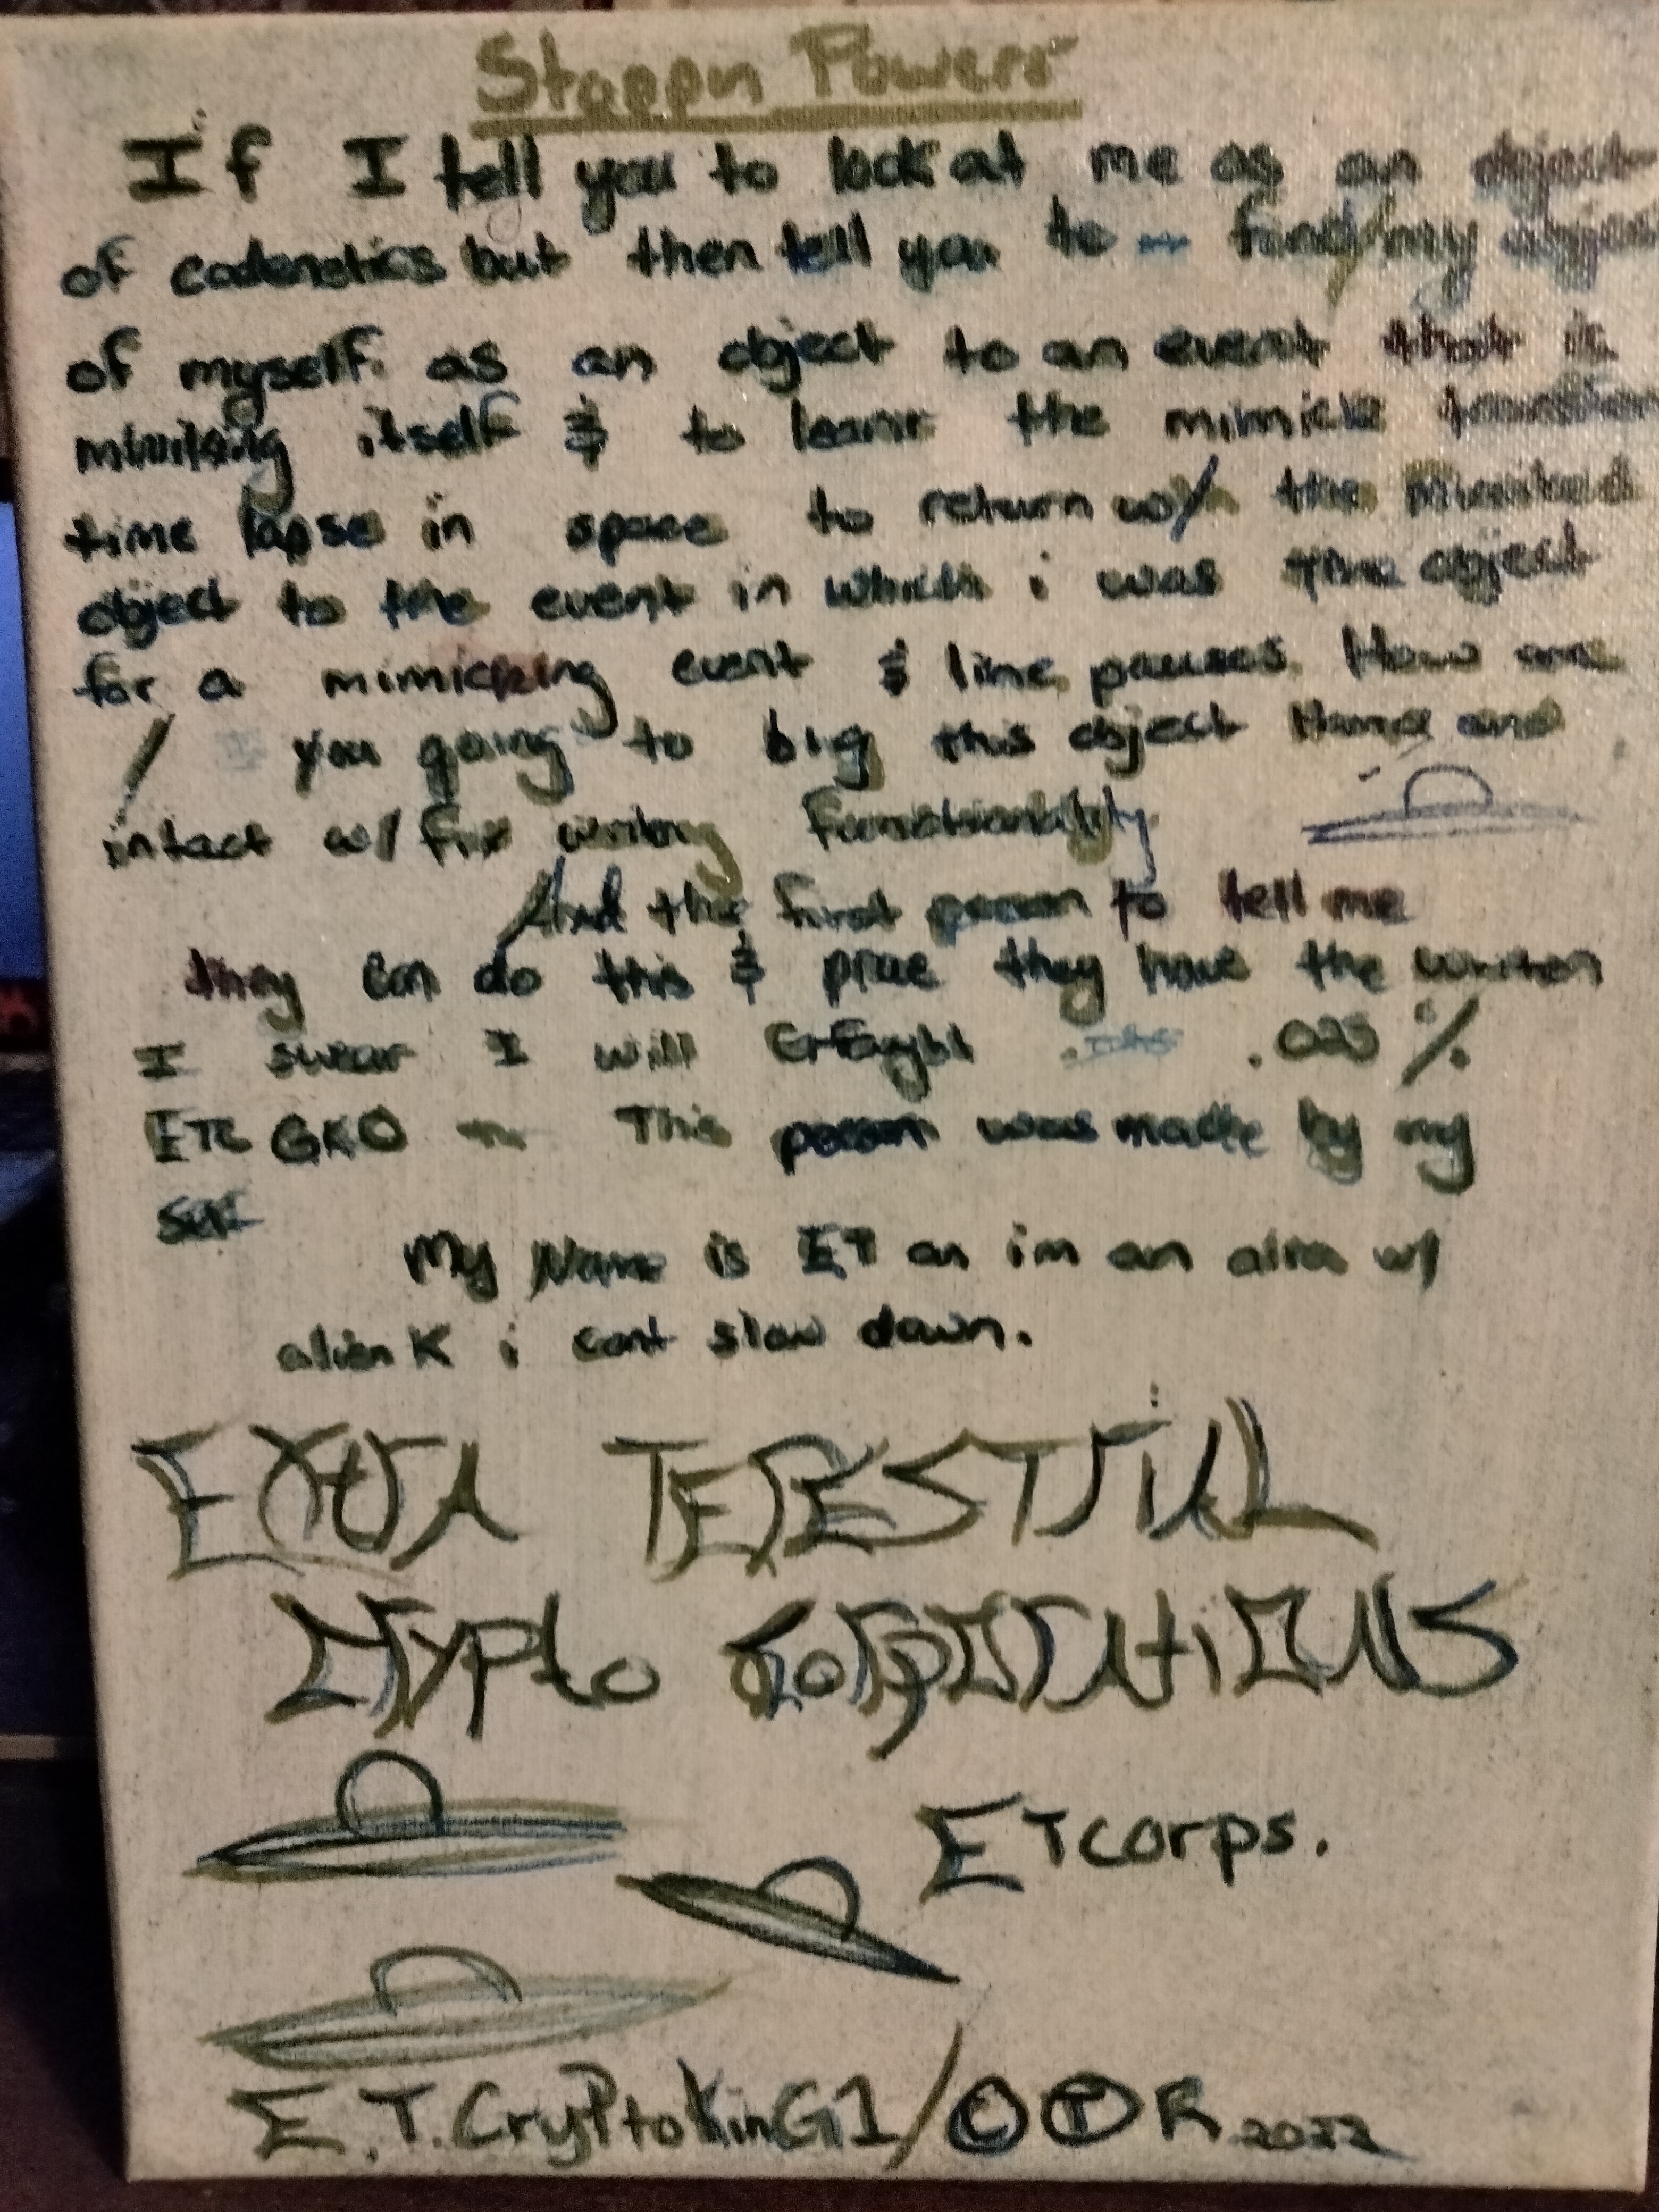 If I tell you to look at me as an object
of but then tell you to find/my
of myself as an object to an event that is
itself & to the mimick
time lapse in space to return w/ the
object to the event in which i was the object
for a mimicking event & time pauses. How are
/ you going to big this object and
intact w/ fix functionability
And the first person to tell me
they can do this & they have the
I swear I will .025 %
GKO This person was made by my
self
My Name is ET an im an w/
alien K i cant slow down.
EXtRA TERESTRiAL
CRYPto CORPORAtiONS
ETcorps.
E.T.CryPtoKinG1/© Ⓣ R 2022